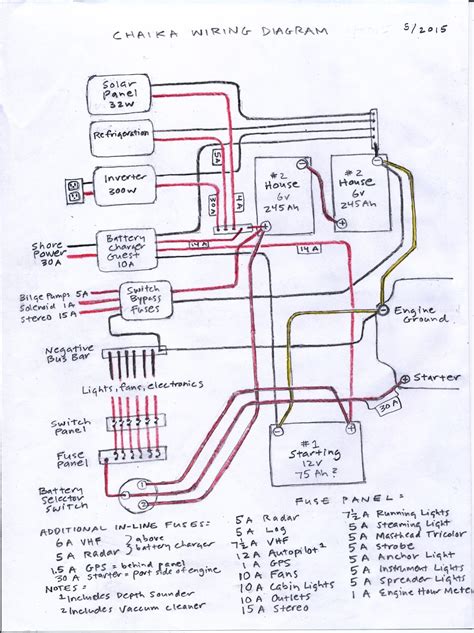 CHAIKA WIRING DIAGRAM
5/2015
Solar
Panel
32W
Refrigeration
Inverter
300W
5A
30A
4A
#2
House
6v
245Ah
#2
House
6v
245Ah
Shore
Power
30A
Battery
Charger
Guest
10A
14A
14A
Bilge Pumps 5A
Solenoid 1A
Stereo 15A
Switch
Bypass
Fuses
Engine
Ground
Negative
Bus Bar
Lights, fans, electronics
Starter
30A
Switch
Panel
Fuse
Panel
#1
Starting
12v
75Ah?
Battery
Selector
Switch
ADDITIONAL IN-LINE FUSES:
6A VHF } above
5A Radar } battery charger
1.5A GPS = behind panel
30A starter = port side of engine
NOTES:
1 Includes Depth Sounder
2 Includes Vaccum cleaner
FUSE PANEL:
5A Radar
5A Log
7½A VHF
12A Autopilot²
1A GPS
10A Fans
10A Cabin Lights
10A Outlets
15A Stereo
7½A Running Lights
5A Steaming Light
5A Masthead Tricolor
5A Strobe
5A Anchor Light
5A Instrument Lights
5A Spreader Lights
1A Engine Hour Meter